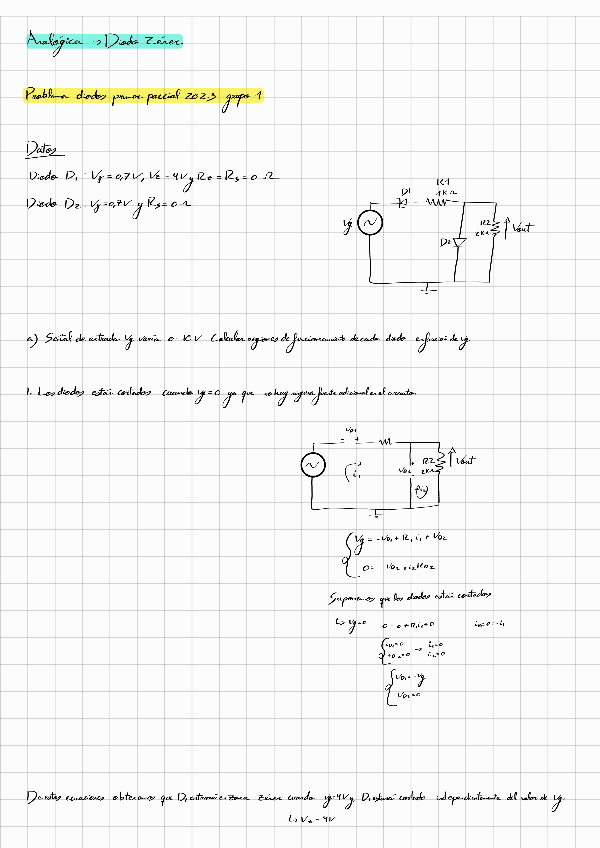 Analógica → Diodo Zéner.
Problema diodos primer parcial 2023 grupo 1
Datos
Diodo D1: Vγ = 0,7V, Vz = 4V y Rz = Rs = 0 Ω
Diodo D2: Vγ = 0,7V y Rs = 0 Ω
D1
R1
1KΩ
Vg
D2
R2
2KΩ
Vout
a) Señal de entrada Vg varía 0-10V Calcular regiones de funcionamiento de cada diodo en función de Vg.
1. Los diodos están cortados cuando Vg=0 ya que no hay ninguna fuente adicional en el circuito.
VD1
- +
i1
VD2
R2
2KΩ
Vout
Vg = -VD1 + R1 i1 + VD2
Suponemos que los diodos están cortados
↳ Vg=0
VD1=-Vg
VD2=0
De estas ecuaciones obtenemos que D1 entrará en zona zéner cuando Vg=4V y D2 estará cortado independientemente del valor de Vg.